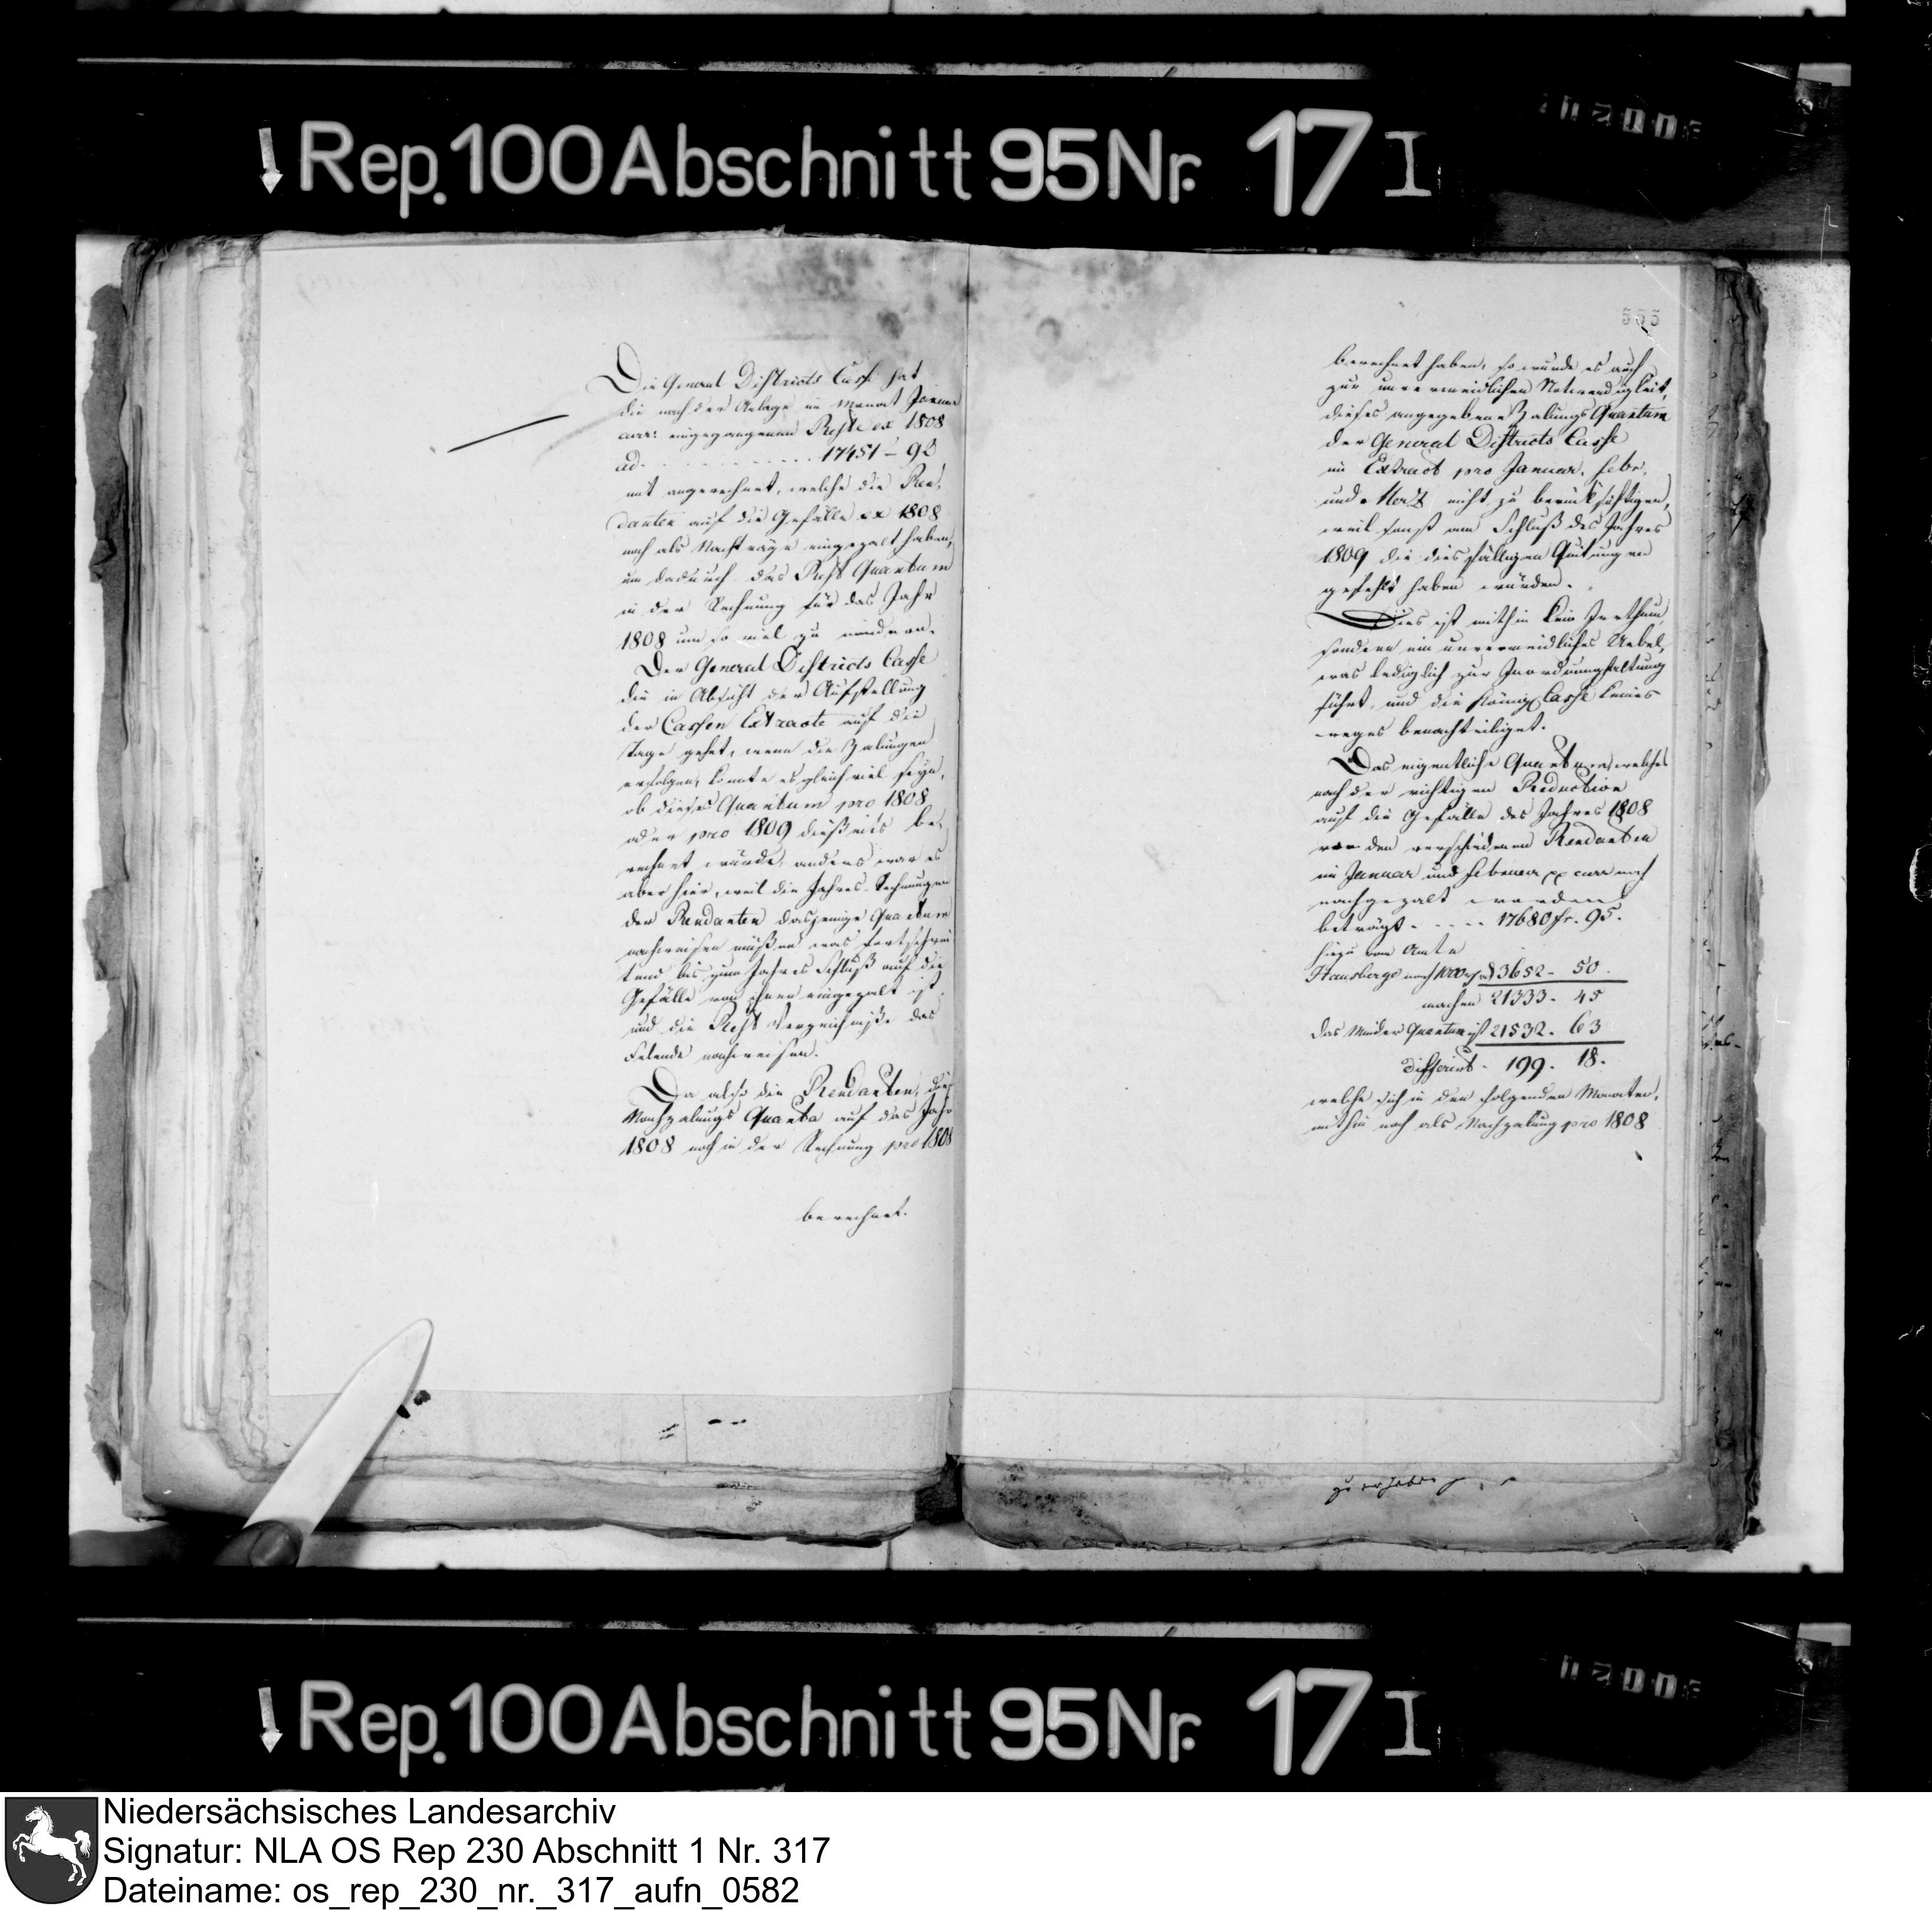 Rep. 100 Abschnitt 95 Nr. 17 I
Die General Districts Casse hat
die nach der Anlage im Monat Januar
curr: eingegangenen Reste ex 1808
ad. . . . . . . . . . 17451 - 92
mit angerechnet, welche die Ren-
danten auf die Gefälle ex 1808
noch als Nachträge eingezalt haben,
um dadurch das Rest Quantum
in der Rechnung für das Jahr
1808 um so viel zu mindern.
Der General Districts Casse
die in Absicht der Aufstellung
der Cassen Extracte auf die
Tage gehet, wenn die Zalungen
erfolgen, konnte es gleich viel seyn,
ob dieses Quantum pro 1808
oder pro 1809 dießeits be-
rechnet würde, anders war es
aber hier, weil die Jahres-Rechnungen
der Rendanten dasjenige Quantum
nachweisen müßen was fortschrei-
tend bis zum Jahres Schluß auf die
Gefälle von ihnen eingezalt ist
und die Rest Verzeichniße das
Felende nachweisen.
Da also die Rendanten, die
Nachzalungs Quanta auf das Jahr
1808 noch in der Rechnung pro 1808
berechnet.
555
berechnet haben, so wurde es auch
zur unvermeidlichen Notwendigkeit,
dieses angegebene Zalungs Quantum
der General Districts Casse
im Extract pro Januar, Febr.
und Merz nicht zu berücksichtigen,
weil sonst am Schluß des Jahres
1809 die diesfälligen Quitungen
gefehlt haben würden.
Dies ist mithin kein Irrthum,
sondern ein unvermeidliches Uebel,
was lediglich zur Inordnunghaltung
führt, und die Königl Casse keines
weges benachteiliget.
Das eigentliche Quantum welches
nach der richtigen Reduction
auf die Gefälle des Jahres 1808
von den verschiedenen Rendanten
im Januar und Februar curr noch
nachgezalt worden
beträgt - - - - 17680 fr. 95.
hiezu vom Amte
Hausberge noch 1000 3652 - 50.
machen 21333 - 45
das Minder Quantum ist 21532 - 63
differirt - 199 - 18.
welche sich in den folgenden Monaten,
mithin noch als Nachzalung pro 1808
zu erheben
Rep. 100 Abschnitt 95 Nr. 17 I
Niedersächsisches Landesarchiv
Signatur: NLA OS Rep 230 Abschnitt 1 Nr. 317
Dateiname: os_rep_230_nr._317_aufn_0582